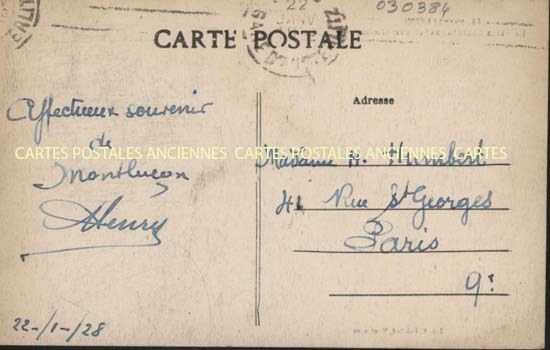 22
JANV
030384
CARTE POSTALE
Adresse
Affectueux souvenir
de
Montluçon
AHenry
22-/1-/28
CARTES POSTALES ANCIENNES CARTES POSTALES ANCIENNES CARTES
Madame H. Humbert
41 Rue St Georges
Paris
9e